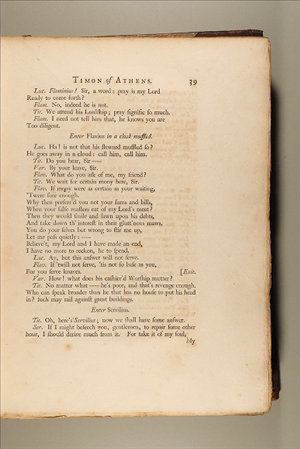 TIMON OF ATHENS. 39
Luc. Flaminius! Sir, a word: pray is my Lord
Ready to come forth?
Flam. No, indeed he is not.
Tit. We attend his Lordship; pray signifie so much.
Flam. I need not tell him that, he knows you are
Too diligent.
Enter Flavius in a cloak muffled.
Luc. Ha! is not that his steward muffled so?
He goes away in a cloud: call him, call him.
Tit. Do you hear, Sir —
Var. By your leave, Sir.
Flav. What do you ask of me, my friend?
Tit. We wait for certain mony here, Sir.
Flav. If mony were as certain as your waiting,
'Twere sure enough.
Why then preferr'd you not your sums and bills,
When your false masters eat of my Lord's meat?
Then they would smile and fawn upon his debts,
And take down th' interest in their glutt'nous maws.
You do your selves but wrong to stir me up,
Let me pass quietly: —
Believe't, my Lord and I have made an end,
I have no more to reckon, he to spend.
Luc. Ay, but this answer will not serve.
Flav. If 'twill not serve, 'tis not so base as you,
For you serve knaves. [Exit.
Var. How! what does his cashier'd Worship mutter?
Tit. No matter what — he's poor, and that's revenge enough.
Who can speak broader than he that has no house to put his head
in? such may rail against great buildings.
Enter Servilius.
Tit. Oh, here's Servilius; now we shall have some answer.
Ser. If I might beseech you, gentlemen, to repair some other
hour, I should derive much from it. For take it of my soul,
My